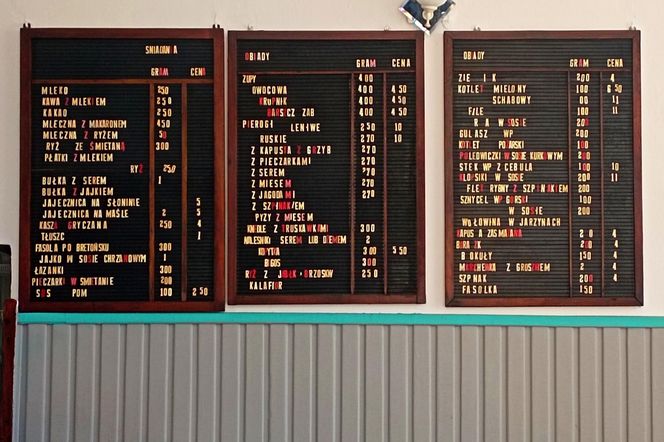 ŚNIADANIA
GRAM CENA
MLEKO 250
KAWA Z MLEKIEM 250
KAKAO 250
MLECZNA Z MAKARONEM 450
MLECZNA Z RYŻEM 50
RYŻ ZE ŚMIETANĄ 300
PŁATKI Z MLEKIEM
RYŻ 250
BUŁKA Z SEREM 1
BUŁKA Z JAJKIEM
JAJECZNICA NA SŁONINIE 5
JAJECZNICA NA MAŚLE 2 5
KASZA GRYCZANA 250 4
TŁUSZC 1
FASOLA PO BRETOŃSKU 300
JAJKO W SOSIE CHRZANOWYM 1
ŁAZANKI 300
PIECZARKI W ŚMIETANIE 200
SOS POM 100 2 50
OBIADY
GRAM CENA
ZUPY 400
OWOCOWA 400 4 50
KRUPNIK 400 4 50
BARSZCZ ZAB 400 4 50
PIEROGI LENIWE 250 10
RUSKIE 270 10
Z KAPUSTĄ Z GRZYB 270
Z PIECZARKAMI 270
Z SEREM 270
Z MIĘSEM 270
Z JAGODAMI 270
Z SZPINAKIEM
PYZY Z MIĘSEM
KNEDLE Z TRUSKAWKAMI
NALEŚNIKI SEREM LUB DŻEMEM 2
KOPYTKA 300 5 50
BIGOS 300
RYŻ Z JABŁK I BRZOSKW 250
KALAFIOR
OBIADY
GRAM CENA
ZIE I K 200 4
KOTLET MIELONY 100 6 50
SCHABOWY 00 11
FILE 100 11
R A W SOSIE 200
GULASZ WP 200
KOTLET POŻARSKI 100
POLĘDWICZKI W SOSIE KURKOWYM 200
STEK WP Z CEBULĄ 100 10
KLOPSIKI W SOSIE 200 11
FILET RYBNY Z SZPINAKIEM 200
SZNYCEL WP GÓRSKI 100
W SOSIE 200
WOŁOWINA W JARZYNACH
KAPUSTA ZASMAŻANA 20 4
BURACZK 200 4
BROKUŁY 150 4
MARCHEWKA Z GROSZKIEM 2 4
SZPINAK 200 4
FASOLKA 100